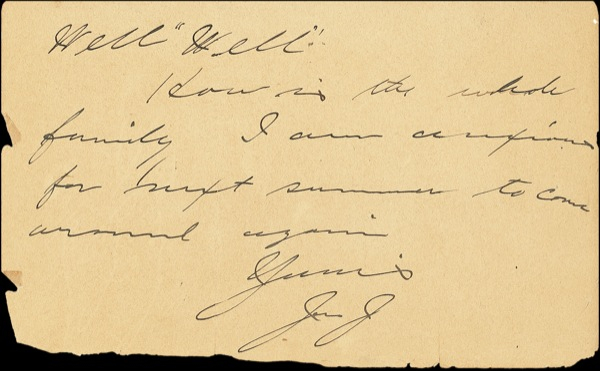 Well "Well"!
How is the whole
family I am anxious
for next summer to come
around again
Yours
J